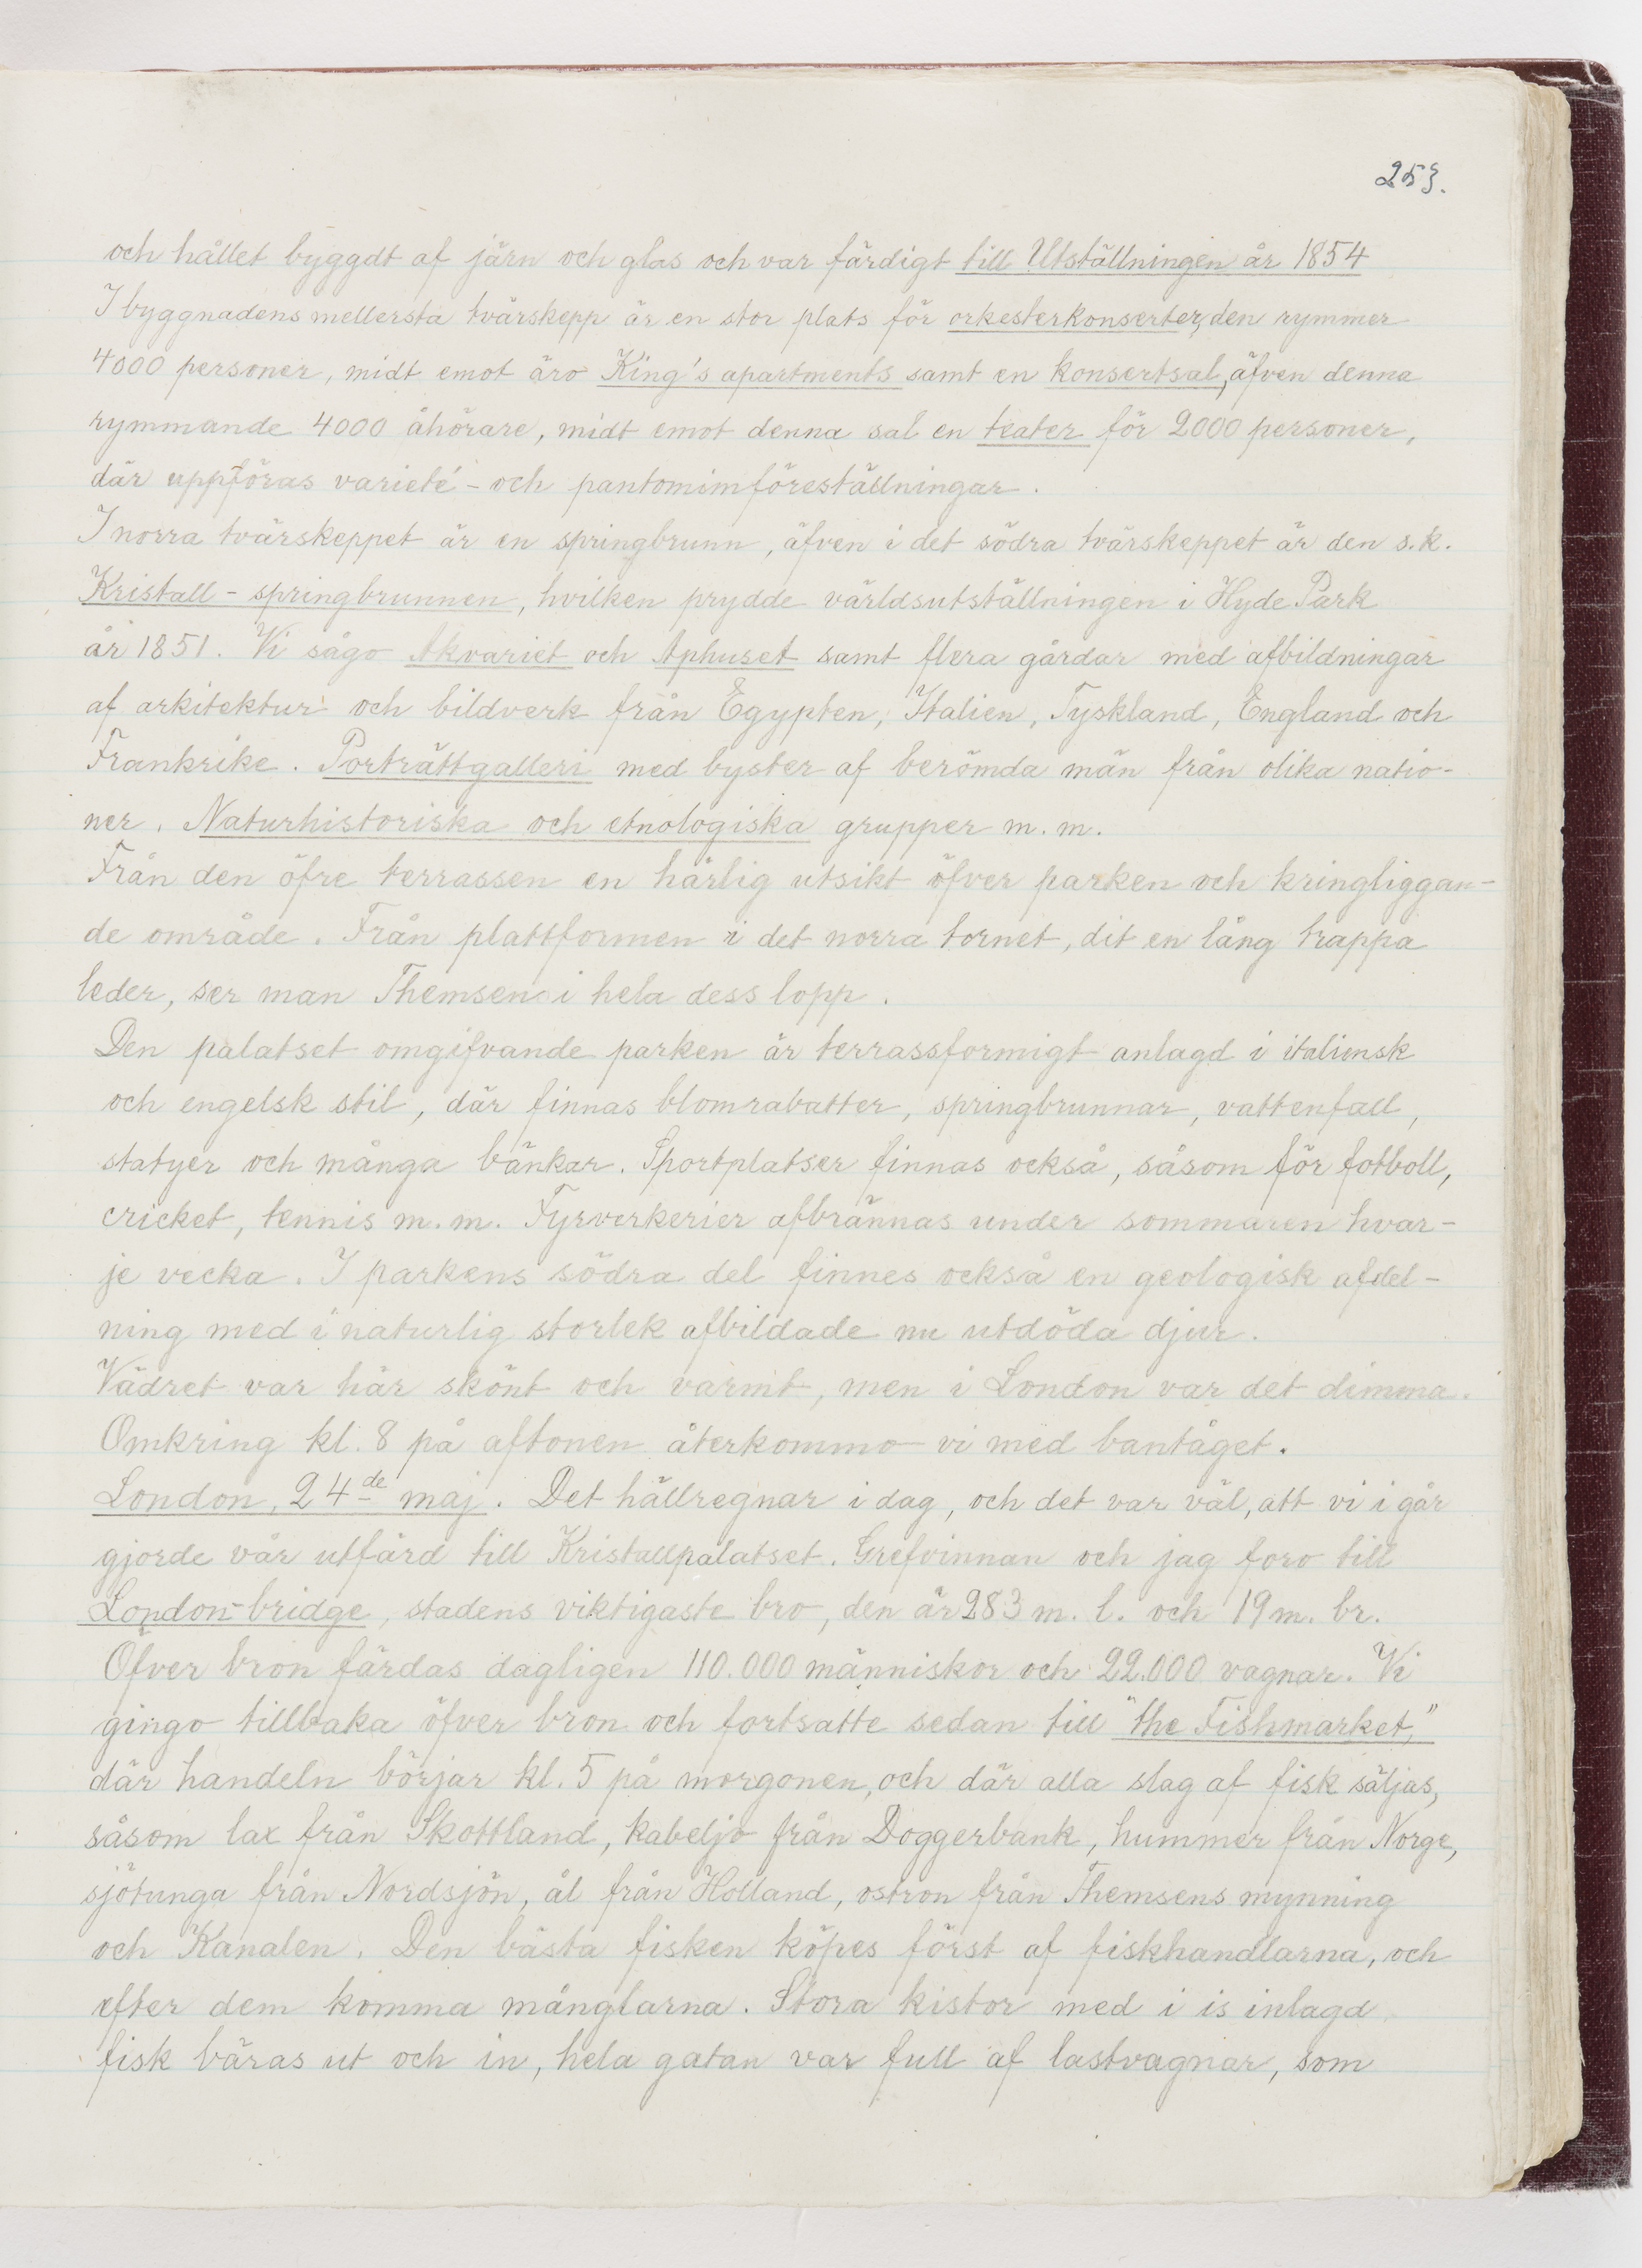 253.
och hållet byggdt af järn och glas och var färdigt till Utställningen år 1854
I byggnadens mellersta tvärskepp är en stor plats för orkesterkonserter, den rymmer
4000 personer, midt emot äro King's apartments samt en konsertsal, äfven denna
rymmande 4000 åhörare, midt emot denna sal en teater för 2000 personer,
där uppföras varieté- och pantomimföreställningar.
I norra tvärskeppet är en springbrunn, äfven i det södra tvärskeppet är den s.k.
Kristall-springbrunnen, hvilken prydde världsutställningen i Hyde Park
år 1851. Vi sågo Akvariet och Aphuset samt flera gårdar med afbildningar
af arkitektur och bildverk från Egypten, Italien, Tyskland, England och
Frankrike. Porträttgalleri med byster af berömda män från olika natio-
ner. Naturhistoriska och etnologiska grupper m.m.
Från den öfre terrassen en härlig utsikt öfver parken och kringliggan-
de område. Från plattformen i det norra tornet, dit en lång trappa
leder, ser man Themsen i hela dess lopp.
Den palatset omgifvande parken är terrassformigt anlagd i italiensk
och engelsk stil, där finnas blomrabatter, springbrunnar, vattenfall,
statyer och många bänkar. Sportplatser finnas också, såsom för fotboll,
cricket, tennis m.m. Fyrverkerier afbrännas under sommaren hvar-
je vecka. I parkens södra del finnes också en geologisk afdel-
ning med i naturlig storlek afbildade nu utdöda djur.
Vädret var här skönt och varmt, men i London var det dimma.
Omkring kl. 8 på aftonen återkommo vi med bantåget.
London, 24de maj. Det hällregnar i dag, och det var väl, att vi i går
gjorde vår utfärd till Kristallpalatset. Grefvinnan och jag foro till
London-bridge, stadens viktigaste bro, den är 283 m. l. och 19 m. br.
Öfver bron färdas dagligen 110.000 människor och 22.000 vagnar. Vi
gingo tillbaka öfver bron och fortsatte sedan till "the Fishmarket,"
där handeln börjar kl. 5 på morgonen, och där alla slag af fisk säljas,
såsom lax från Skottland, kabeljo från Doggerbank, hummer från Norge,
sjötunga från Nordsjön, ål från Holland, ostron från Themsens mynning
och Kanalen. Den bästa fisken köpes först af fiskhandlarna, och
efter dem komma månglarna. Stora kistor med i is inlagd
fisk bäras ut och in, hela gatan var full af lastvagnar, som